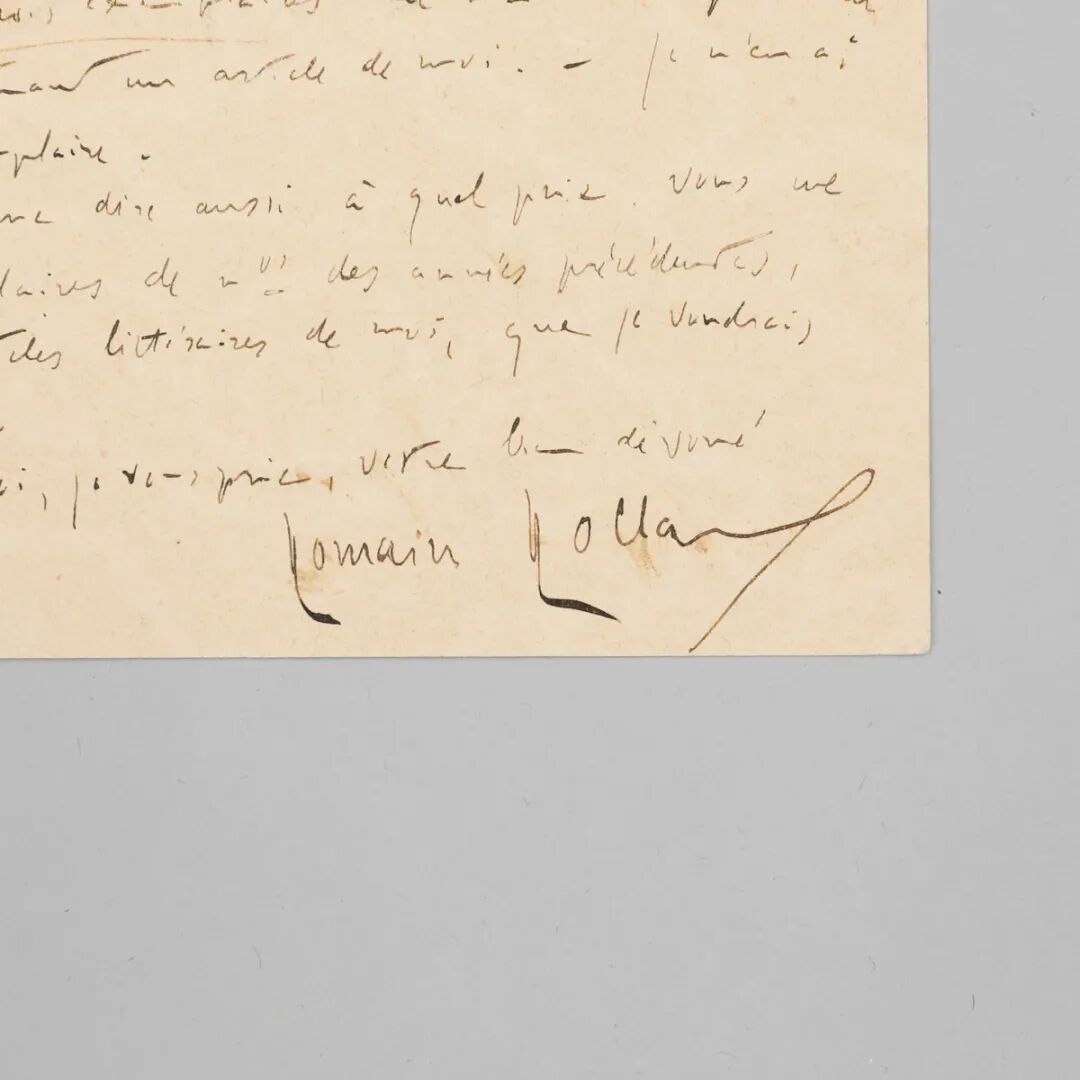 exemplaires
un article de moi. — je n'en ai
-plaire.
dire aussi à quel prix vous me
-laires de nos des années précédentes,
littéraires de moi, que je voudrais
je vous prie, votre bien dévoué
Romain Rolland